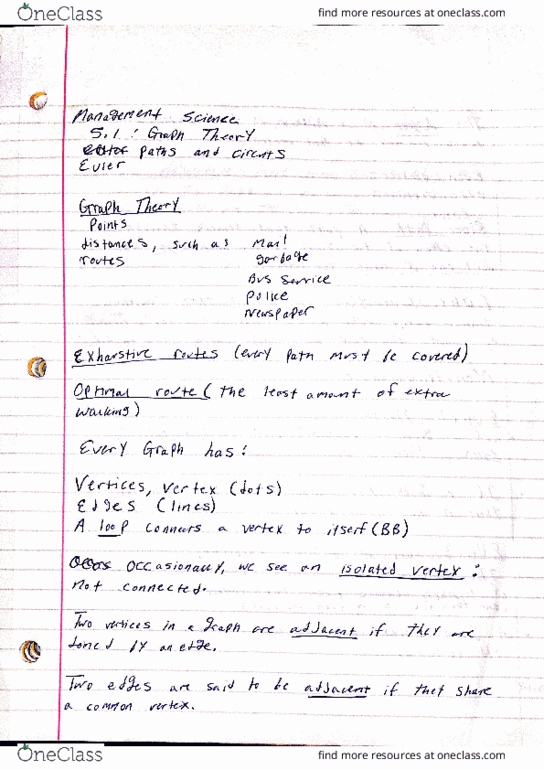 OneClass find more resources at oneclass.com
Management Science
5.1: Graph Theory
paths and circuits
Euler
Graph Theory
Points
distances, such as Mail
routes garbage
Bus Service
Police
Newspaper
Exhaustive routes (every path must be covered)
Optimal route (the least amount of extra
walking)
Every Graph has:
Vertices, vertex (dots)
Edges (lines)
A loop connects a vertex to itself (BB)
Occasionally, we see an isolated vertex:
not connected.
Two vertices in a graph are adjacent if they are
joined by an edge.
Two edges are said to be adjacent if they share
a common vertex.
OneClass find more resources at oneclass.com